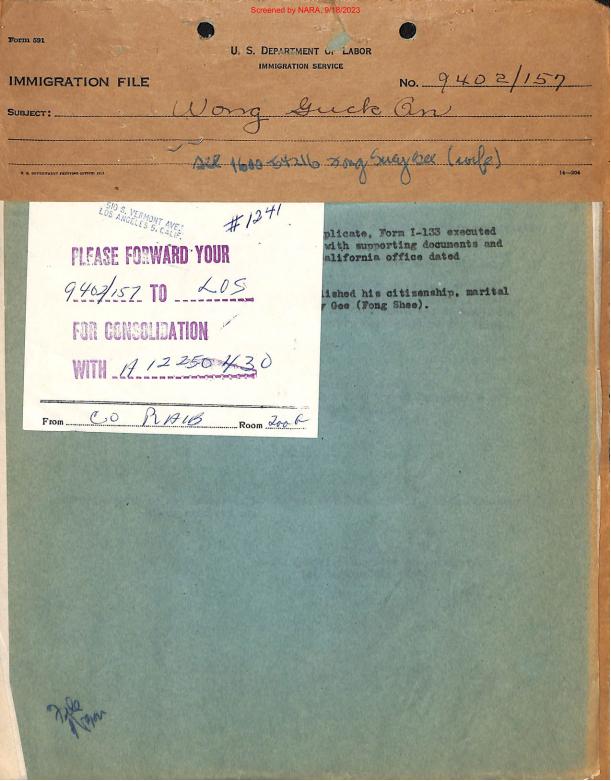 Screened by NARA, 9/18/2023
Form 591
U. S. DEPARTMENT OF LABOR
IMMIGRATION SERVICE
IMMIGRATION FILE
No. 9402/157
SUBJECT: Wong Guck On
1600-54216 Fong Suey Gee (wife)
U. S. GOVERNMENT PRINTING OFFICE
14—204
510 S. VERMONT AVE.
LOS ANGELES 5, CALIF.
#1241
PLEASE FORWARD YOUR
9402/157 TO LOS
FOR CONSOLIDATION
WITH A 12250430
From CO Room 2006
plicate, Form I-133 executed
with supporting documents and
alifornia office dated
lished his citizenship, marital
y Gee (Fong Shee).
File